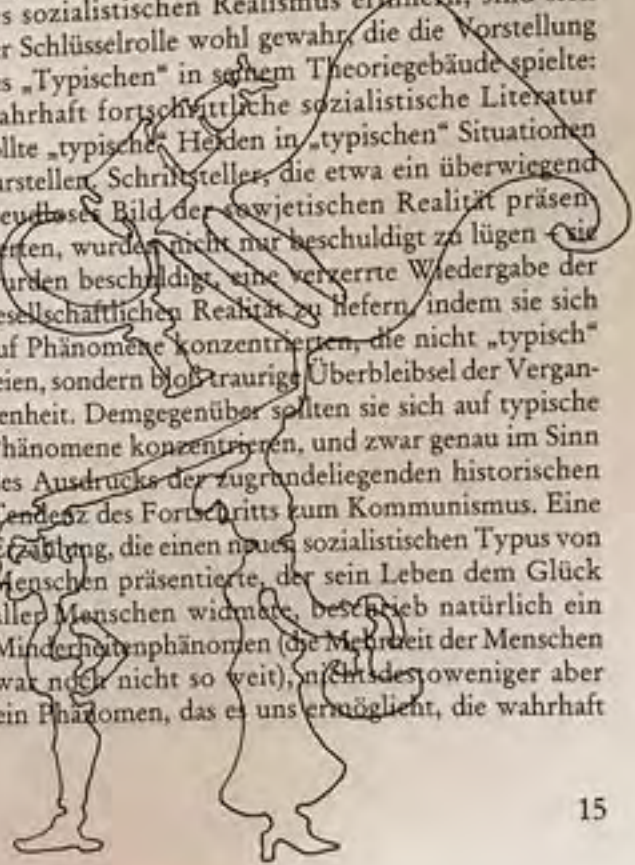 s sozialistischen Realismus
r Schlüsselrolle wohl gewahr, die die Vorstellung
s „Typischen“ in seinem Theoriegebäude spielte:
ahrhaft fortschrittliche sozialistische Literatur
llte „typische“ Helden in „typischen“ Situationen
arstellen. Schriftsteller, die etwa ein überwiegend
eudloses Bild der sowjetischen Realität präsen-
erten, wurden nicht nur beschuldigt zu lügen – sie
urden beschuldigt, eine verzerrte Wiedergabe der
esellschaftlichen Realität zu liefern, indem sie sich
uf Phänomene konzentrierten, die nicht „typisch“
eien, sondern bloß traurige Überbleibsel der Vergan-
enheit. Demgegenüber sollten sie sich auf typische
hänomene konzentrieren, und zwar genau im Sinn
es Ausdrucks der zugrundeliegenden historischen
Tendenz des Fortschritts zum Kommunismus. Eine
Erzählung, die einen neuen sozialistischen Typus von
Menschen präsentierte, der sein Leben dem Glück
aller Menschen widmete, beschrieb natürlich ein
Minderheitenphänomen (die Mehrheit der Menschen
war noch nicht so weit), nichtsdestoweniger aber
ein Phänomen, das es uns ermöglicht, die wahrhaft
15